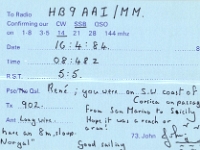 To Radio HB9AAI/MM.
Confirming our CW SSB QSO
on 1·8 3·5 14 21 28 144 mhz
Date 16.4.84.
Time 0848Z
R.S.T. 5.5.
Pse Tnx Qsl. René; you were on S.W coast of
Tx 902. Corsica on passage
From San Marino to Sicily
Ant Long wire. Hope it was a reach or
a run!
have an 8m, sloop 73. John
"Norgal" Good sailing